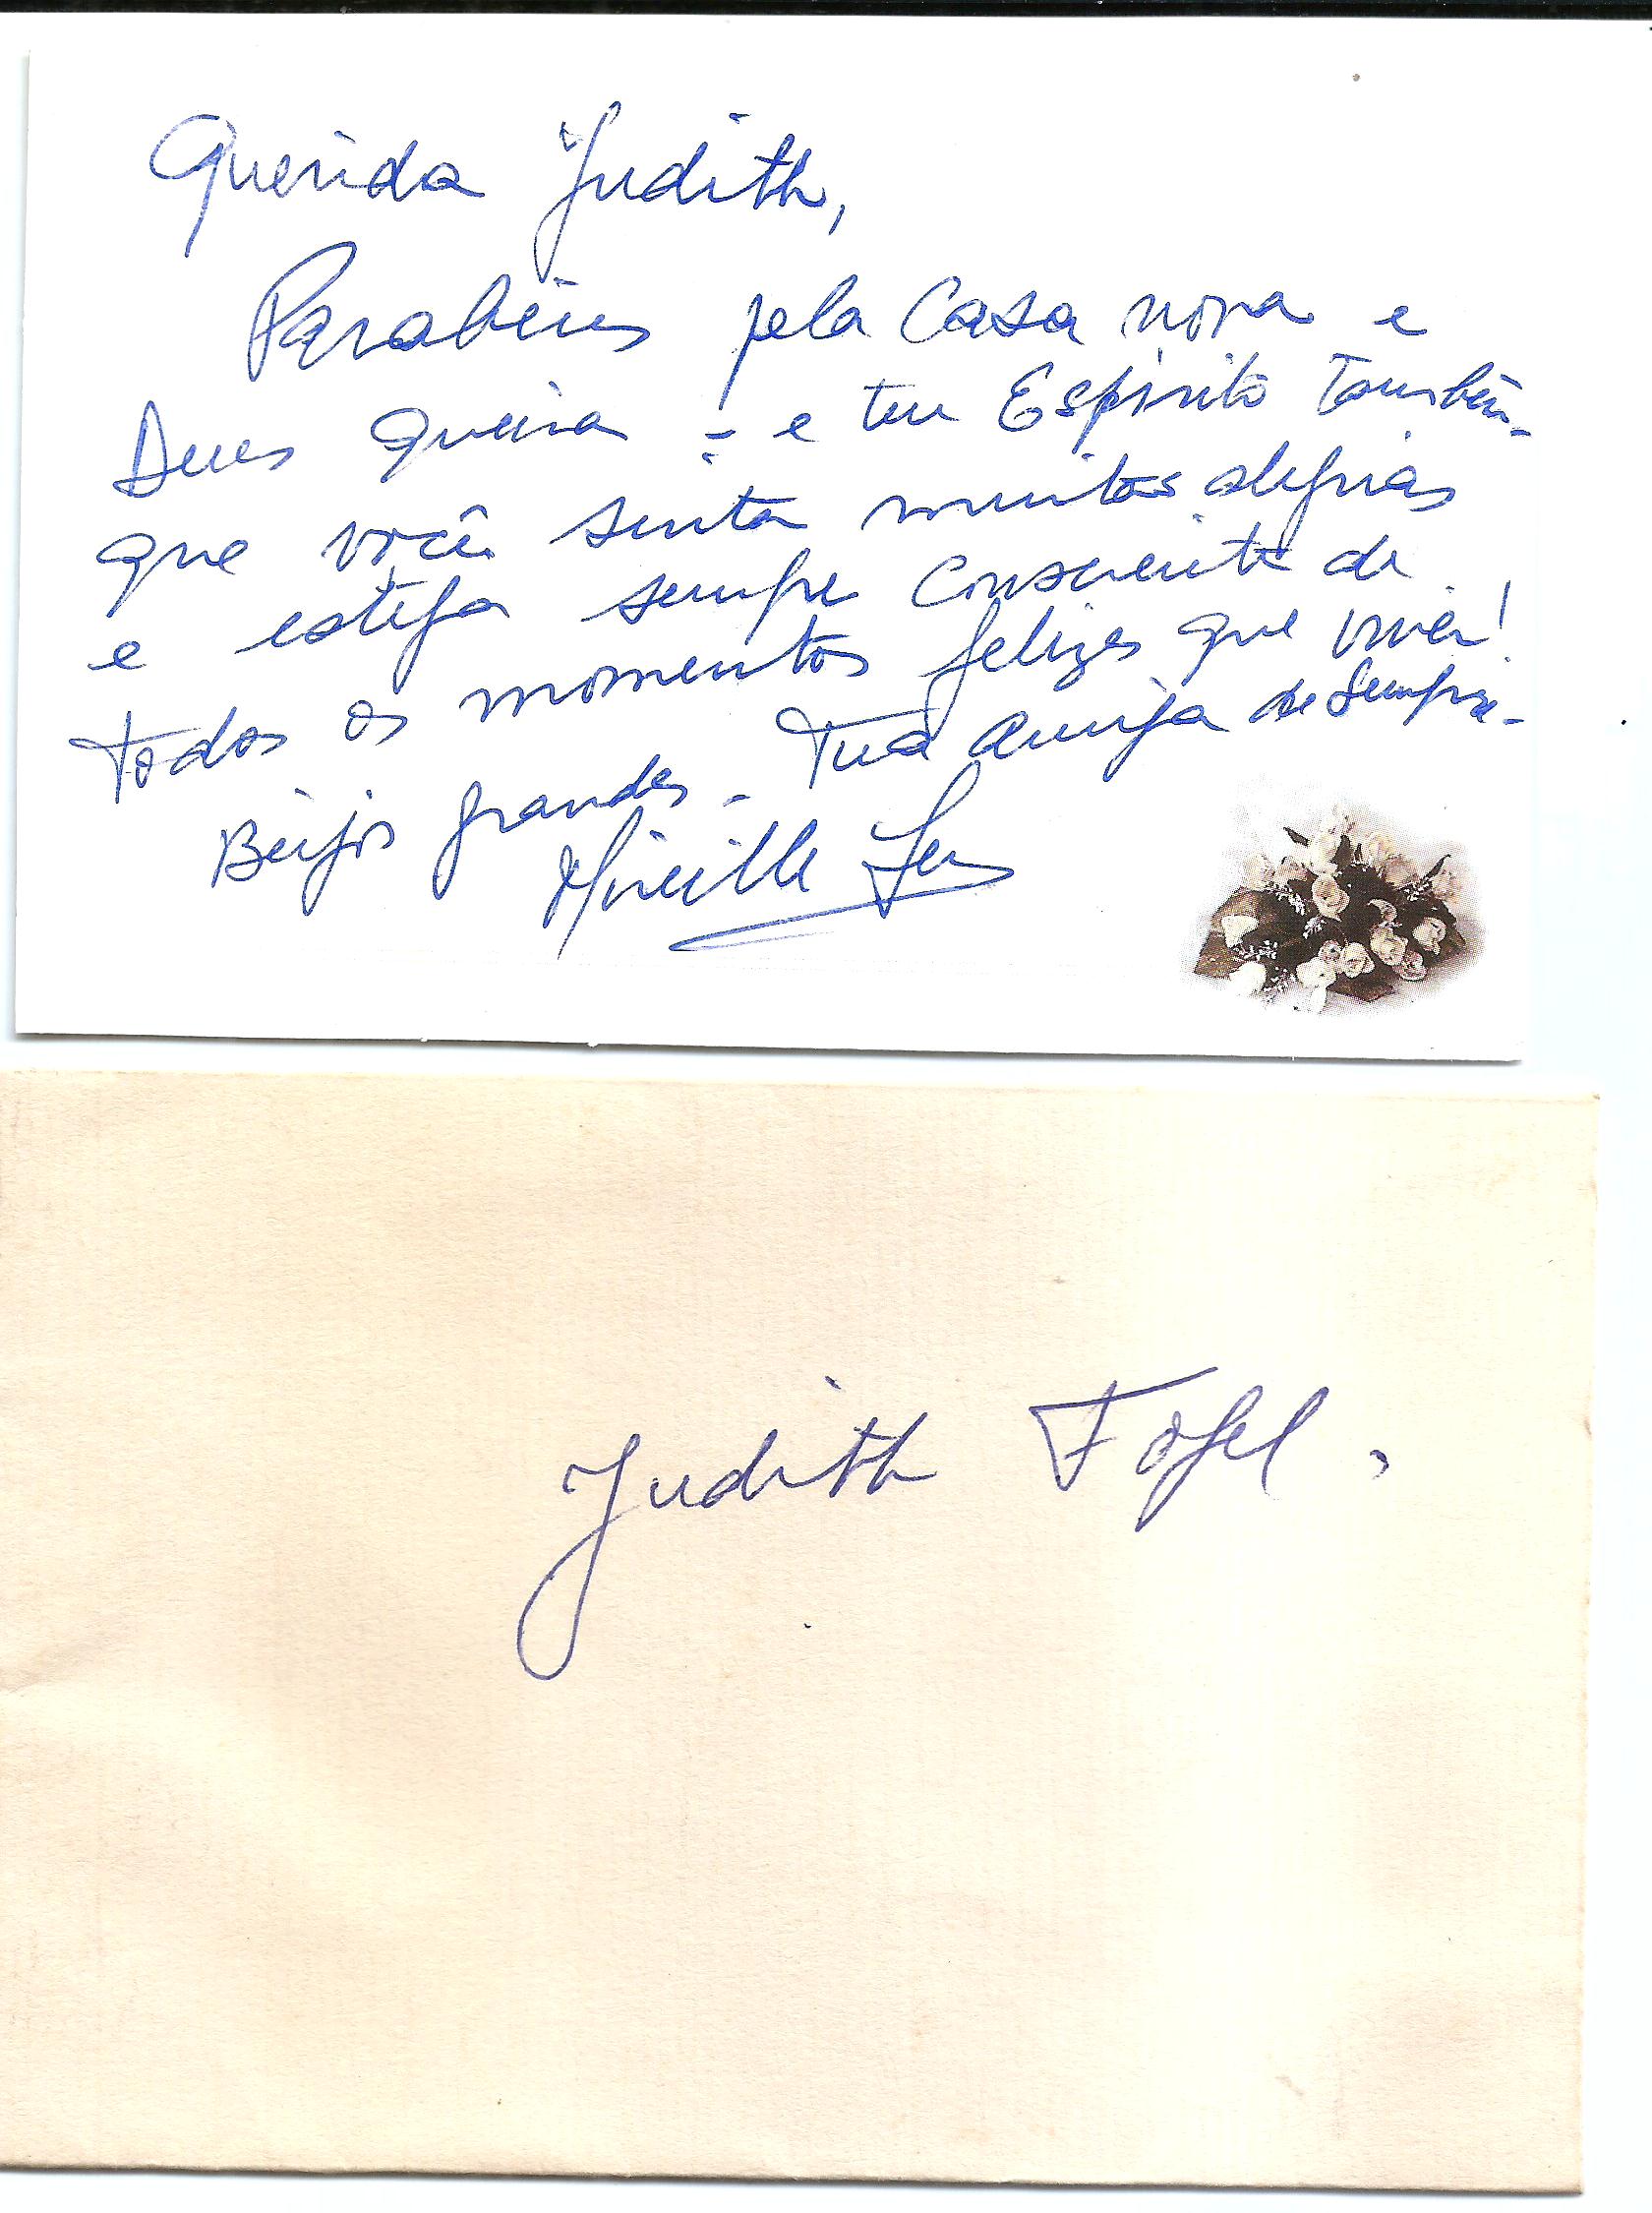 Querida Judith,
Parabéns pela Casa nova e
Deus queira - e teu Espírito também -
que você sinta muitas alegrias
e esteja sempre consciente de
todos os momentos felizes que viver!
Beijos grandes - Tua amiga de sempre -
Mireille
Judith